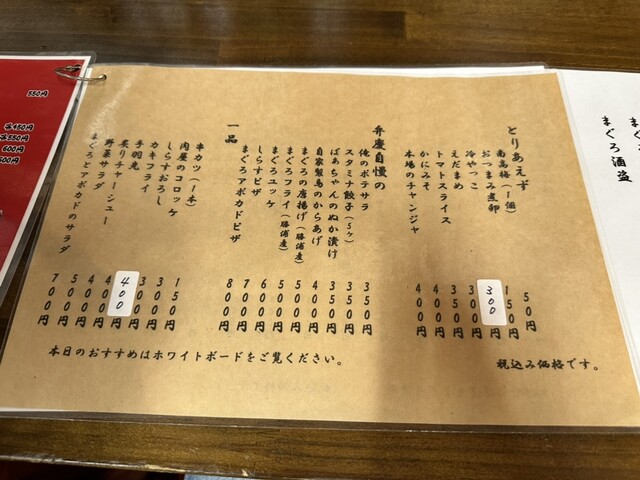 とりあえず
南高梅(1個) 50円
おつまみ煮卵 150円
冷やっこ 300
えだまめ 300円
トマトスライス 350円
かにみそ 400円
本場のチャンジャ 400円
弁慶自慢の
俺のポテサラ 350円
スタミナ餃子(5ケ) 350円
ばあちゃんのぬか漬け 350円
自家製鳥のからあげ 400円
まぐろの唐揚げ(勝浦産) 500円
まぐろフライ(勝浦産) 500円
まぐろユッケ 600円
しらすピザ 700円
まぐろアボカドピザ 800円
一品
串カツ(1本) 150円
肉屋のコロッケ 300円
しらすおろし 300円
カキフライ 400
手羽先 400円
炙りチャーシュー 400円
野菜サラダ 500円
まぐろとアボカドのサラダ 700円
本日のおすすめはホワイトボードをご覧ください。
税込み価格です。
まぐろ酒盗
550円
各450円
各550円
600円